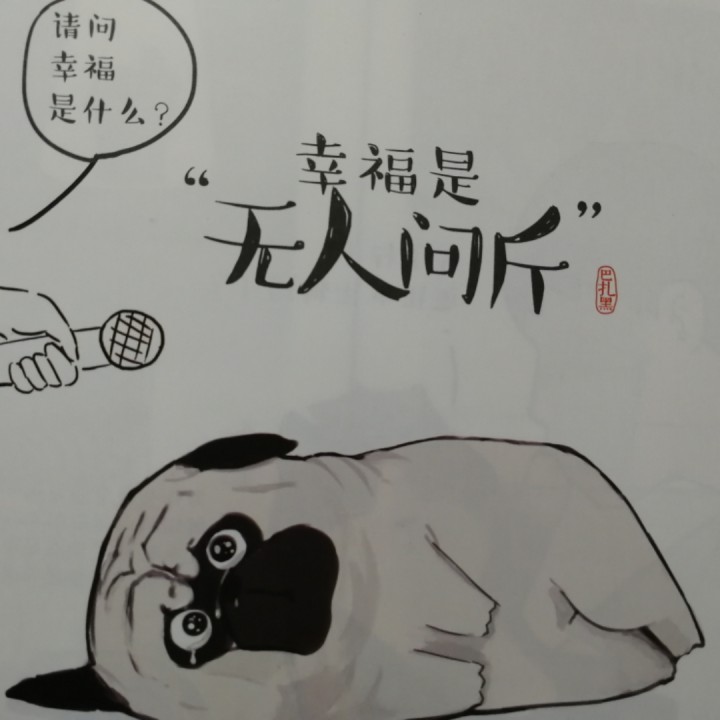 请问
幸福
是什么?
幸福是
“无人问斤”
巴扎黑